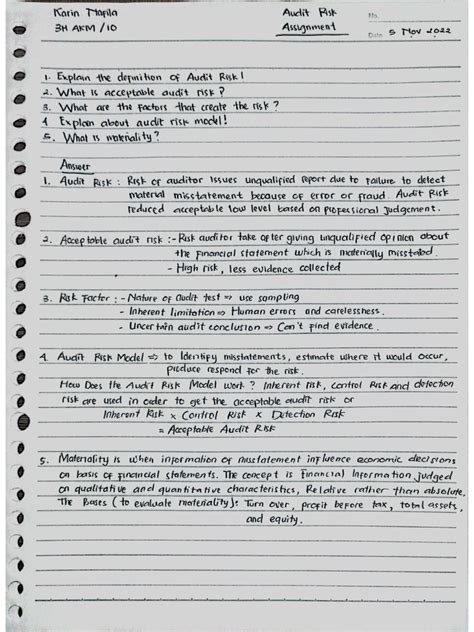 Karin Mafila Audit Risk No.
3H AKM / 10 Assignment Date 5 Nov 2022
1. Explain the definition of Audit Risk!
2. What is acceptable audit risk?
3. What are the factors that create the risk?
4 Explain about audit risk model!
5. What is materiality?
Answer
1. Audit Risk : Risk of auditor issues unqualified report due to failure to detect
material misstatement because of error or fraud. Audit Risk
reduced acceptable low level based on professional judgement.
2. Acceptable audit risk :- Risk auditor take after giving unqualified opinion about
the financial statement which is materially misstated.
- High risk, less evidence collected
3. Risk Factor : - Nature of audit test => use sampling
- Inherent limitation => Human errors and carelessness.
- Uncertain audit conclusion => Can't find evidence.
4. Audit Risk Model => to Identify misstatements, estimate where it would occur,
produce respond for the risk.
How Does the Audit Risk Model work? Inherent risk, control Risk and detection
risk are used in order to get the acceptable audit risk or
Inherent Risk x Control Risk x Detection Risk
= Acceptable Audit Risk
5. Materiality is when information of misstatement influence economic decisions
on basis of financial statements. The concept is Financial Information judged
on qualitative and quantitative characteristics, Relative rather than absolute.
The Bases (to evaluate materiality): Turn over, profit before tax, total assets,
and equity.